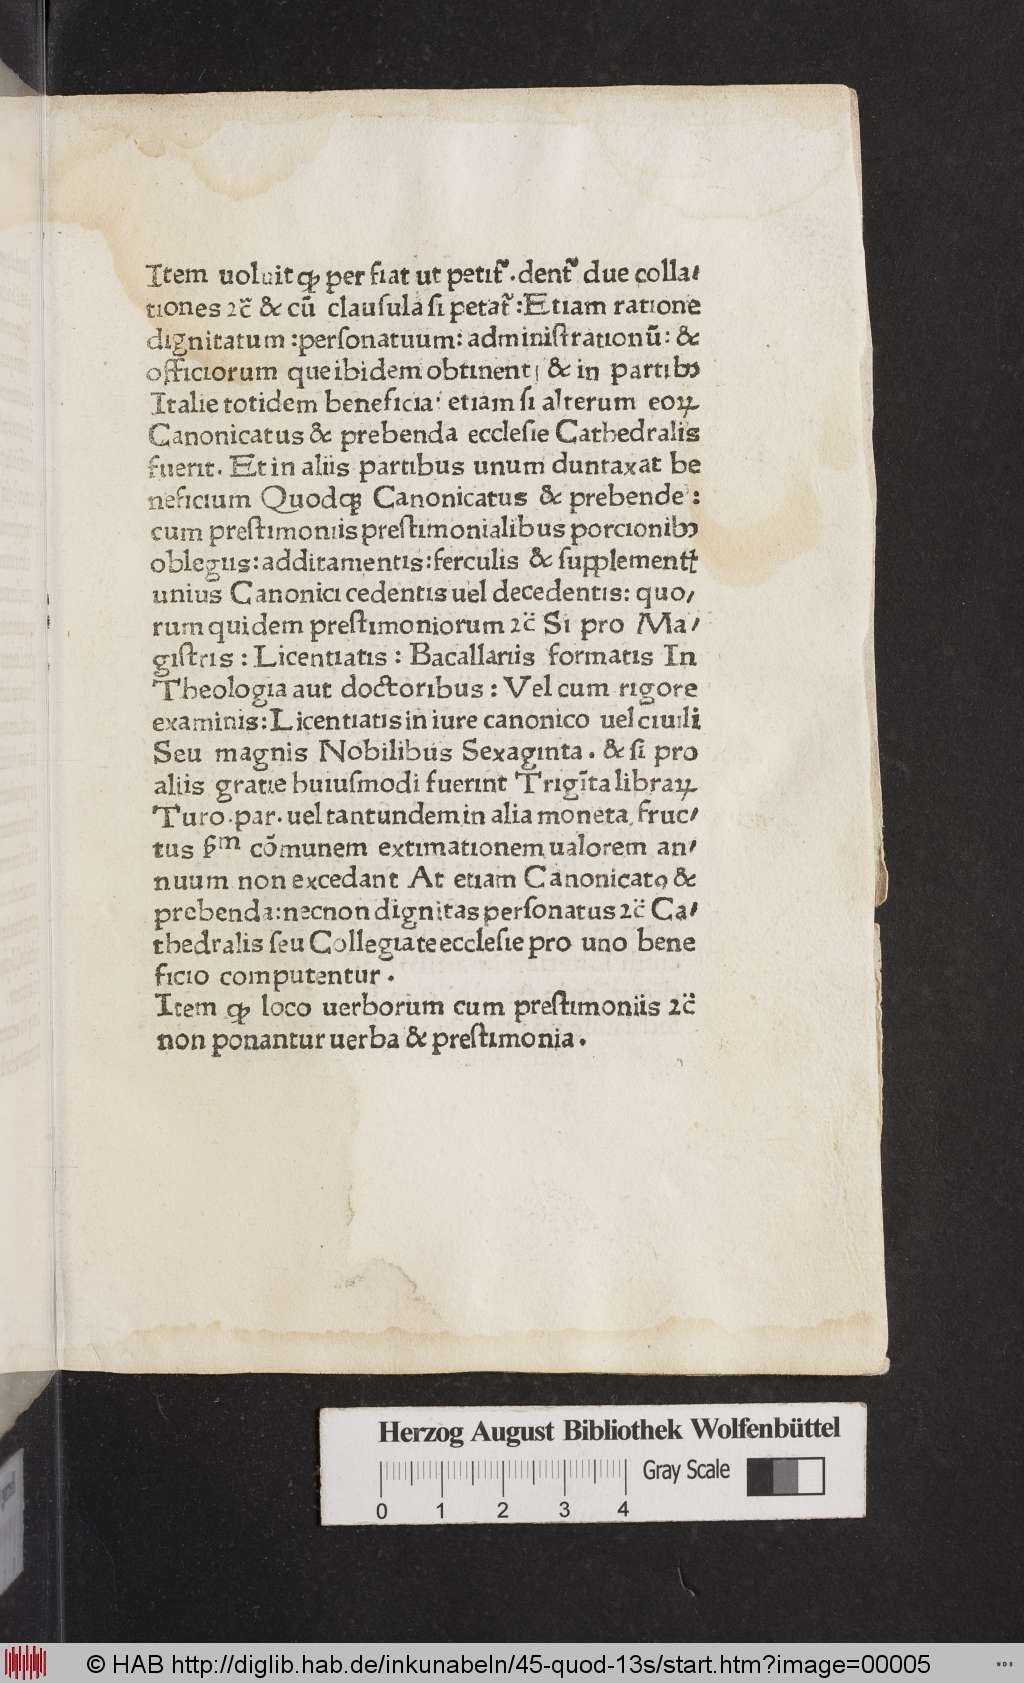 Item uoluit ꝙ per fiat ut petit᷑. dent᷑ due colla/
tiones ⁊c̃ & cũ clauſula ſi petat᷑ : Etiam ratione
dignitatum : perſonatuum : adminiſtrationũ : &
officiorum que ibidem obtinent & in partibꝫ
Italie totidem beneficia : etiam ſi alterum eoꝝ
Canonicatus & prebenda eccleſie Cathedralis
fuerit. Et in aliis partibus unum duntaxat be
neficium Quodꝙ Canonicatus & prebende :
cum preſtimoniis preſtimonialibus porcionibꝫ
oblegiis : additamentis : ferculis & ſupplement
unius Canonici cedentis uel decedentis : quo/
rum quidem preſtimoniorum ⁊c̃ Si pro Ma/
giſtris : Licentiatis : Bacallariis formatis In
Theologia aut doctoribus : Vel cum rigore
examinis : Licentiatis in iure canonico uel ciuili
Seu magnis Nobilibus Sexaginta . & ſi pro
aliis gratie huiuſmodi fuerint Trigĩta libraꝝ
Turo . par . uel tantundem in alia moneta fruc/
tus ẜm cõmunem extimationem ualorem an/
nuum non excedant At etiam Canonicatꝯ &
prebenda : necnon dignitas perſonatus ⁊c̃ Ca/
thedralis ſeu Collegiate eccleſie pro uno bene
ficio computentur .
Item ꝙ loco uerborum cum preſtimoniis ⁊c̃
non ponantur uerba & preſtimonia .
Herzog August Bibliothek Wolfenbüttel
Gray Scale
0 1 2 3 4
© HAB http://diglib.hab.de/inkunabeln/45-quod-13s/start.htm?image=00005